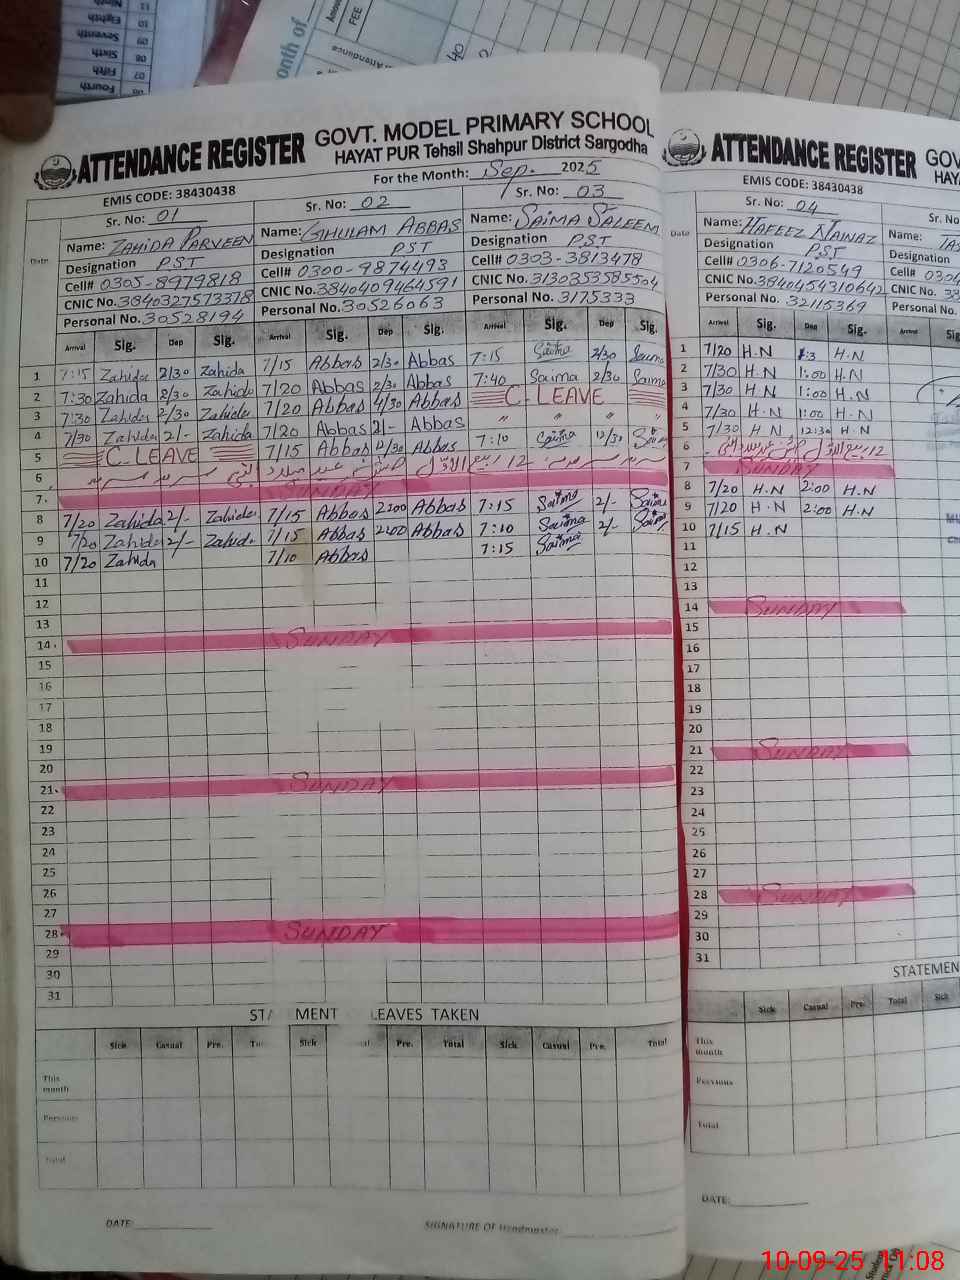 Ninth 11
Eighth 10
Seventh 09
Sixth 08
Fifth 07
Fourth 06
FEE
Attendance
onth of
ATTENDANCE REGISTER GOVT. MODEL PRIMARY SCHOOL
HAYAT PUR Tehsil Shahpur District Sargodha
EMIS CODE: 38430438 For the Month: Sep. 2025
Date Sr. No: 01 Sr. No: 02 Sr. No: 03
Name: ZAHIDA PARVEEN Name: GHULAM ABBAS Name: SAIMA SALEEM
Designation PST Designation PST Designation PST
Cell# 0305-8979818 Cell# 0300-9874493 Cell# 0303-3813478
CNIC No. 3840327573378 CNIC No. 3840409464591 CNIC No. 3130353585504
Personal No. 30528194 Personal No. 30526063 Personal No. 3175333
Arrival Sig. Dep Sig. Arrival Sig. Dep Sig. Arrival Sig. Dep Sig.
1 7:15 Zahida 2/30 Zahida 7/15 Abbas 2/30 Abbas 7:15 Saima 2/30 Saima
2 7:30 Zahida 2/30 Zahida 7/20 Abbas 2/30 Abbas 7:40 Saima 2/30 Saima
3 7:30 Zahida 2/30 Zahida 7/20 Abbas 4/30 Abbas C-LEAVE
4 7/30 Zahida 2/- Zahida 7/20 Abbas 2/- Abbas " " " "
5 C-LEAVE 7/15 Abbas 12/30 Abbas 7:10 Saima 12/30 Saima
6 12 ربیع الاوّل
7 SUNDAY
8 7/20 Zahida 2/- Zahida 7/15 Abbas 2:00 Abbas 7:15 Saima 2/- Saima
9 7/20 Zahida 2/- Zahida 7/15 Abbas 2:00 Abbas 7:10 Saima 2/- Saima
10 7/20 Zahida 7/10 Abbas 7:15 Saima
11
12
13
14 SUNDAY
15
16
17
18
19
20
21 SUNDAY
22
23
24
25
26
27
28 SUNDAY
29
30
31
STA MENT LEAVES TAKEN
Sick Casual Pre. Sick Pre. Total Sick Casual Pre. Total
This month
Previous
Total
DATE: SIGNATURE OF Headmaster
ATTENDANCE REGISTER GOV
HAYA
EMIS CODE: 38430438
Date Sr. No: 04 Sr. No:
Name: HAFEEZ NAWAZ Name: TAS
Designation PST Designation
Cell# 0306-7120549 Cell# 0304
CNIC No. 3840454310642 CNIC No. 38
Personal No. 32115369 Personal No.
Arrival Sig. Dep Sig. Arrival Sig.
1 7/20 H.N H.N
2 7/30 H.N 1:00 H.N
3 7/30 H.N 1:00 H.N
4 7/30 H.N 1:00 H.N
5 7/30 H.N 12:30 H.N
6 12 ربیع الاوّل
7 SUNDAY
8 7/20 H.N 2:00 H.N
9 7/20 H.N 2:00 H.N
10 7/15 H.N
11
12
13
14 SUNDAY
15
16
17
18
19
20
21 SUNDAY
22
23
24
25
26
27
28 SUNDAY
29
30
31
STATEMEN
Sick Casual Pre. Total Sick
This month
Previous
Total
DATE:
10-09-25 11:08